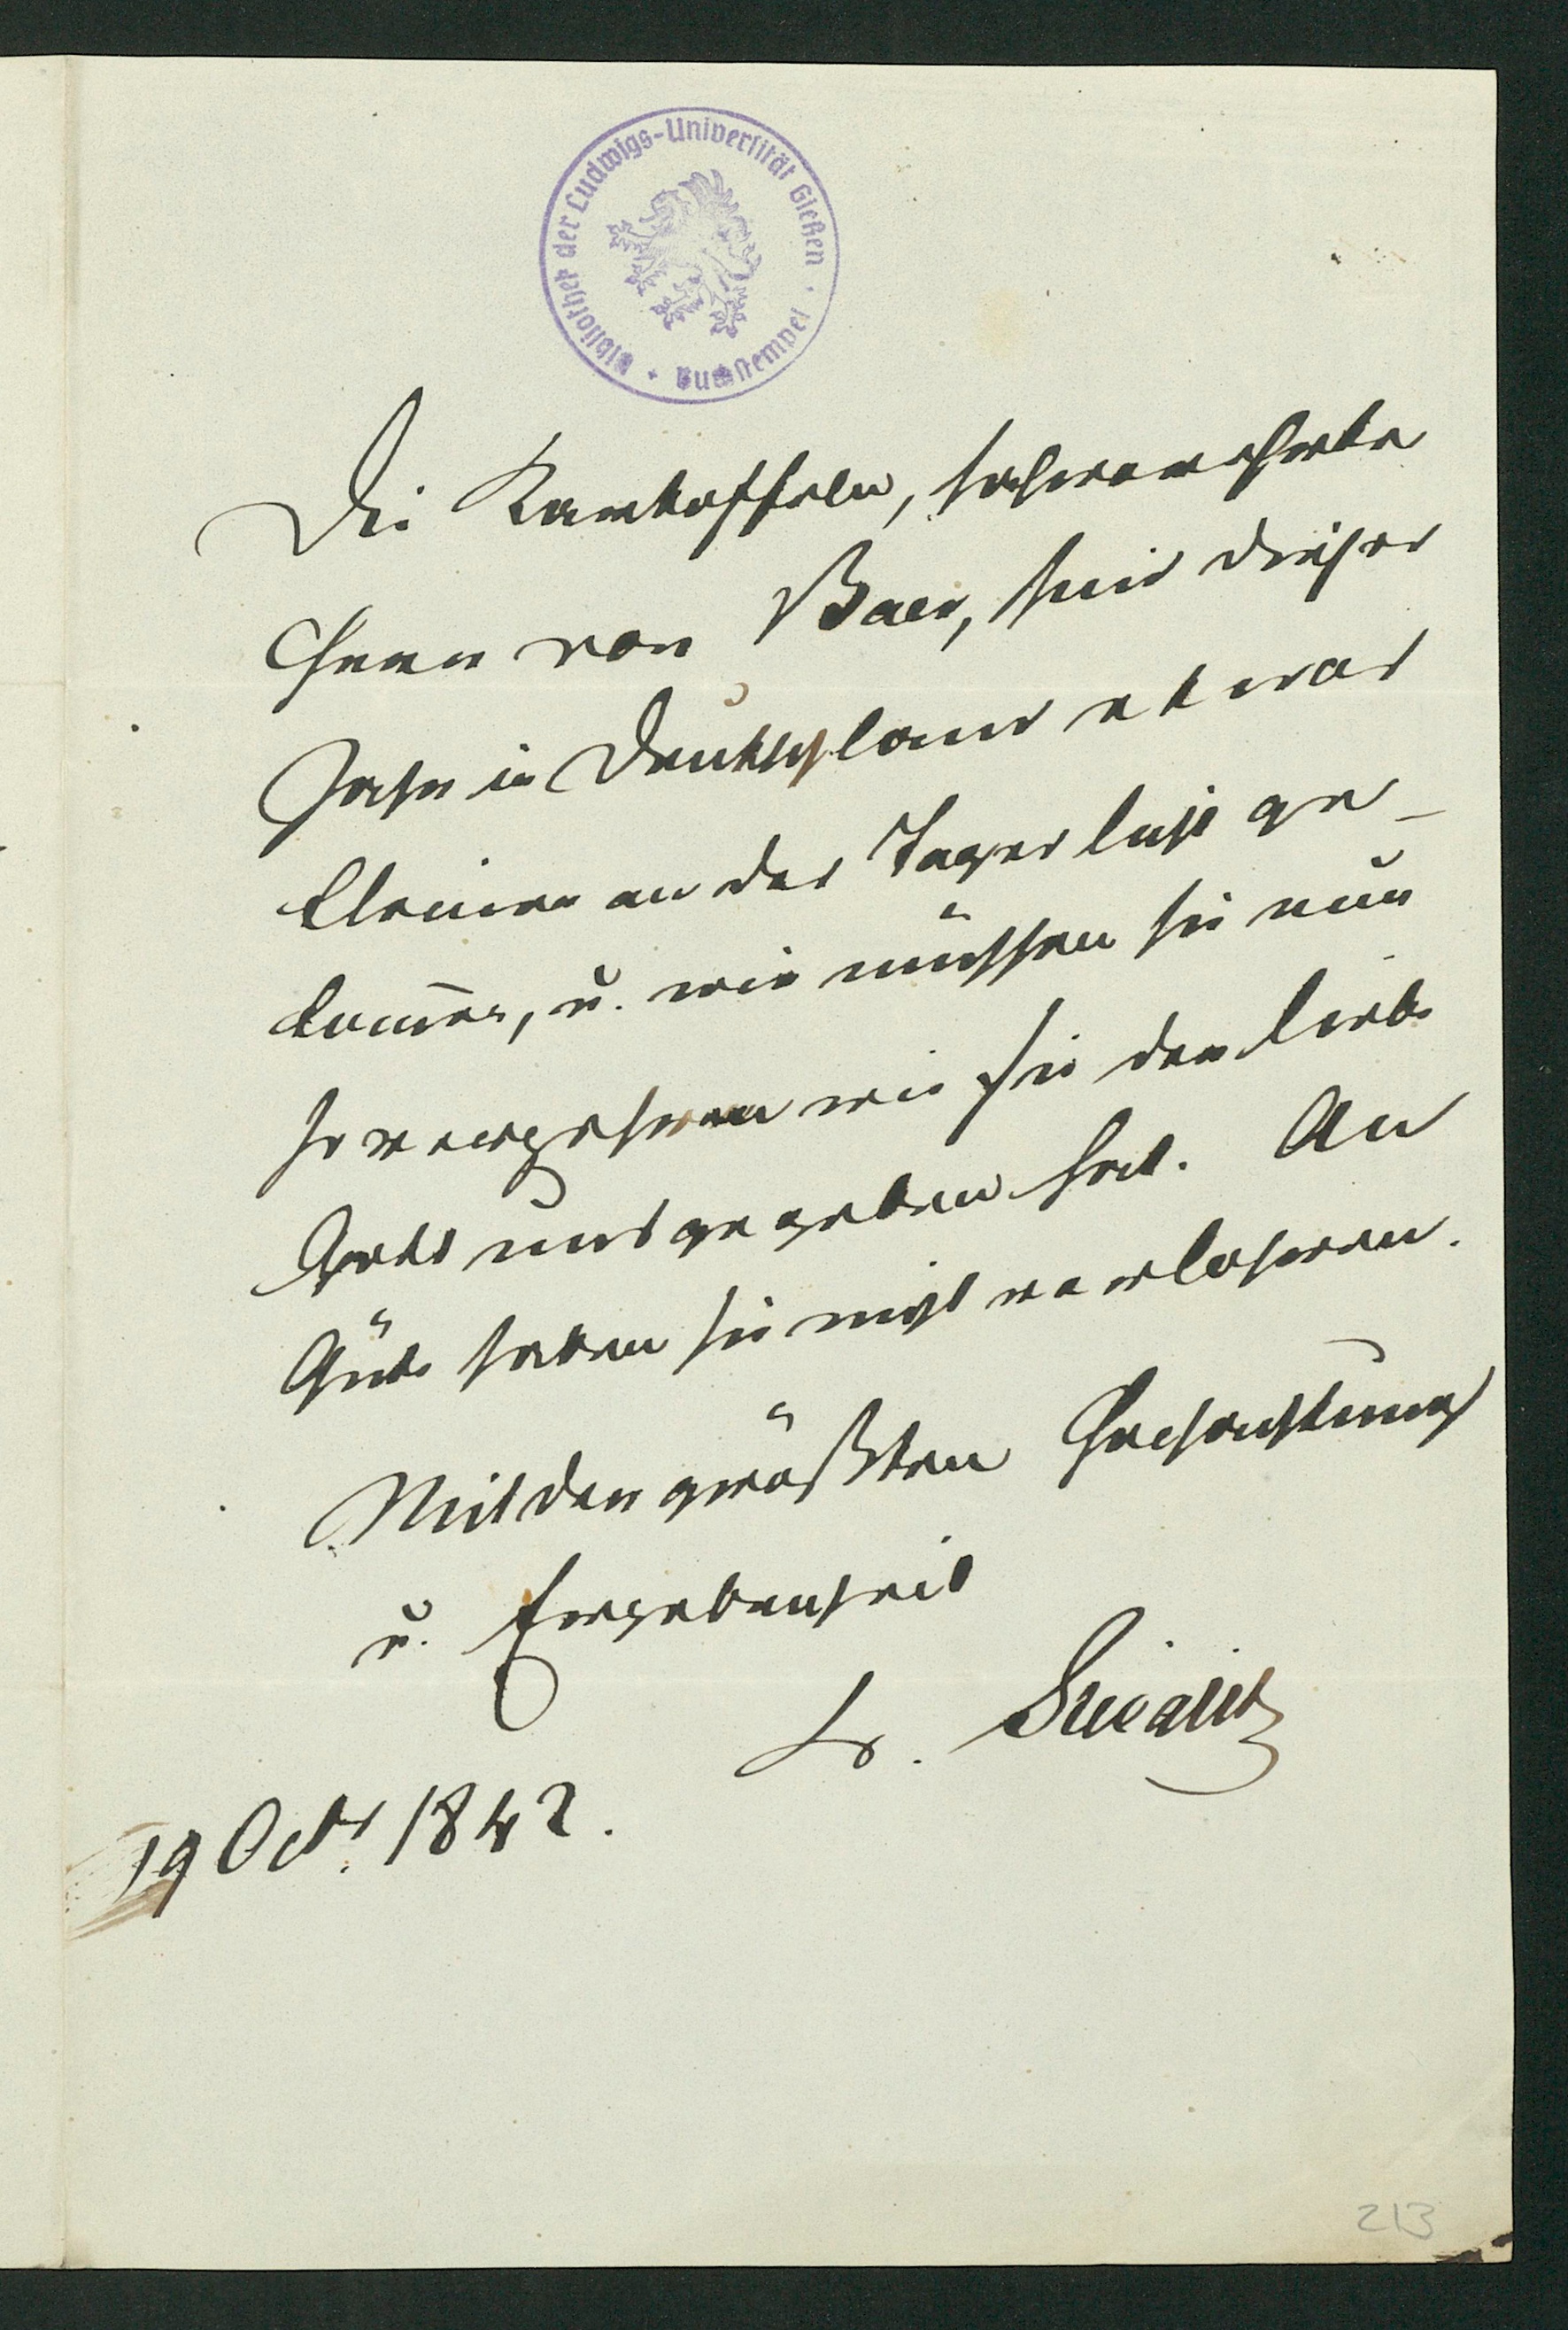 Bibliothek der Ludwigs-Universität Gießen · Buchstempel ·
Die Kartoffeln, hochverehrter
Herr von Baer, sind dieses
Jahr in Deutschland etwas
kleiner an das Tageslicht ge-
kom̄en, u. wir müssen sie nun
so verzehren wie sie der liebe
Gott uns gegeben hat. An
Güte haben sie nicht verlohren.
Mit der größten Hochachtung
u. Ergebenheit
19 Octr. 1842.
213